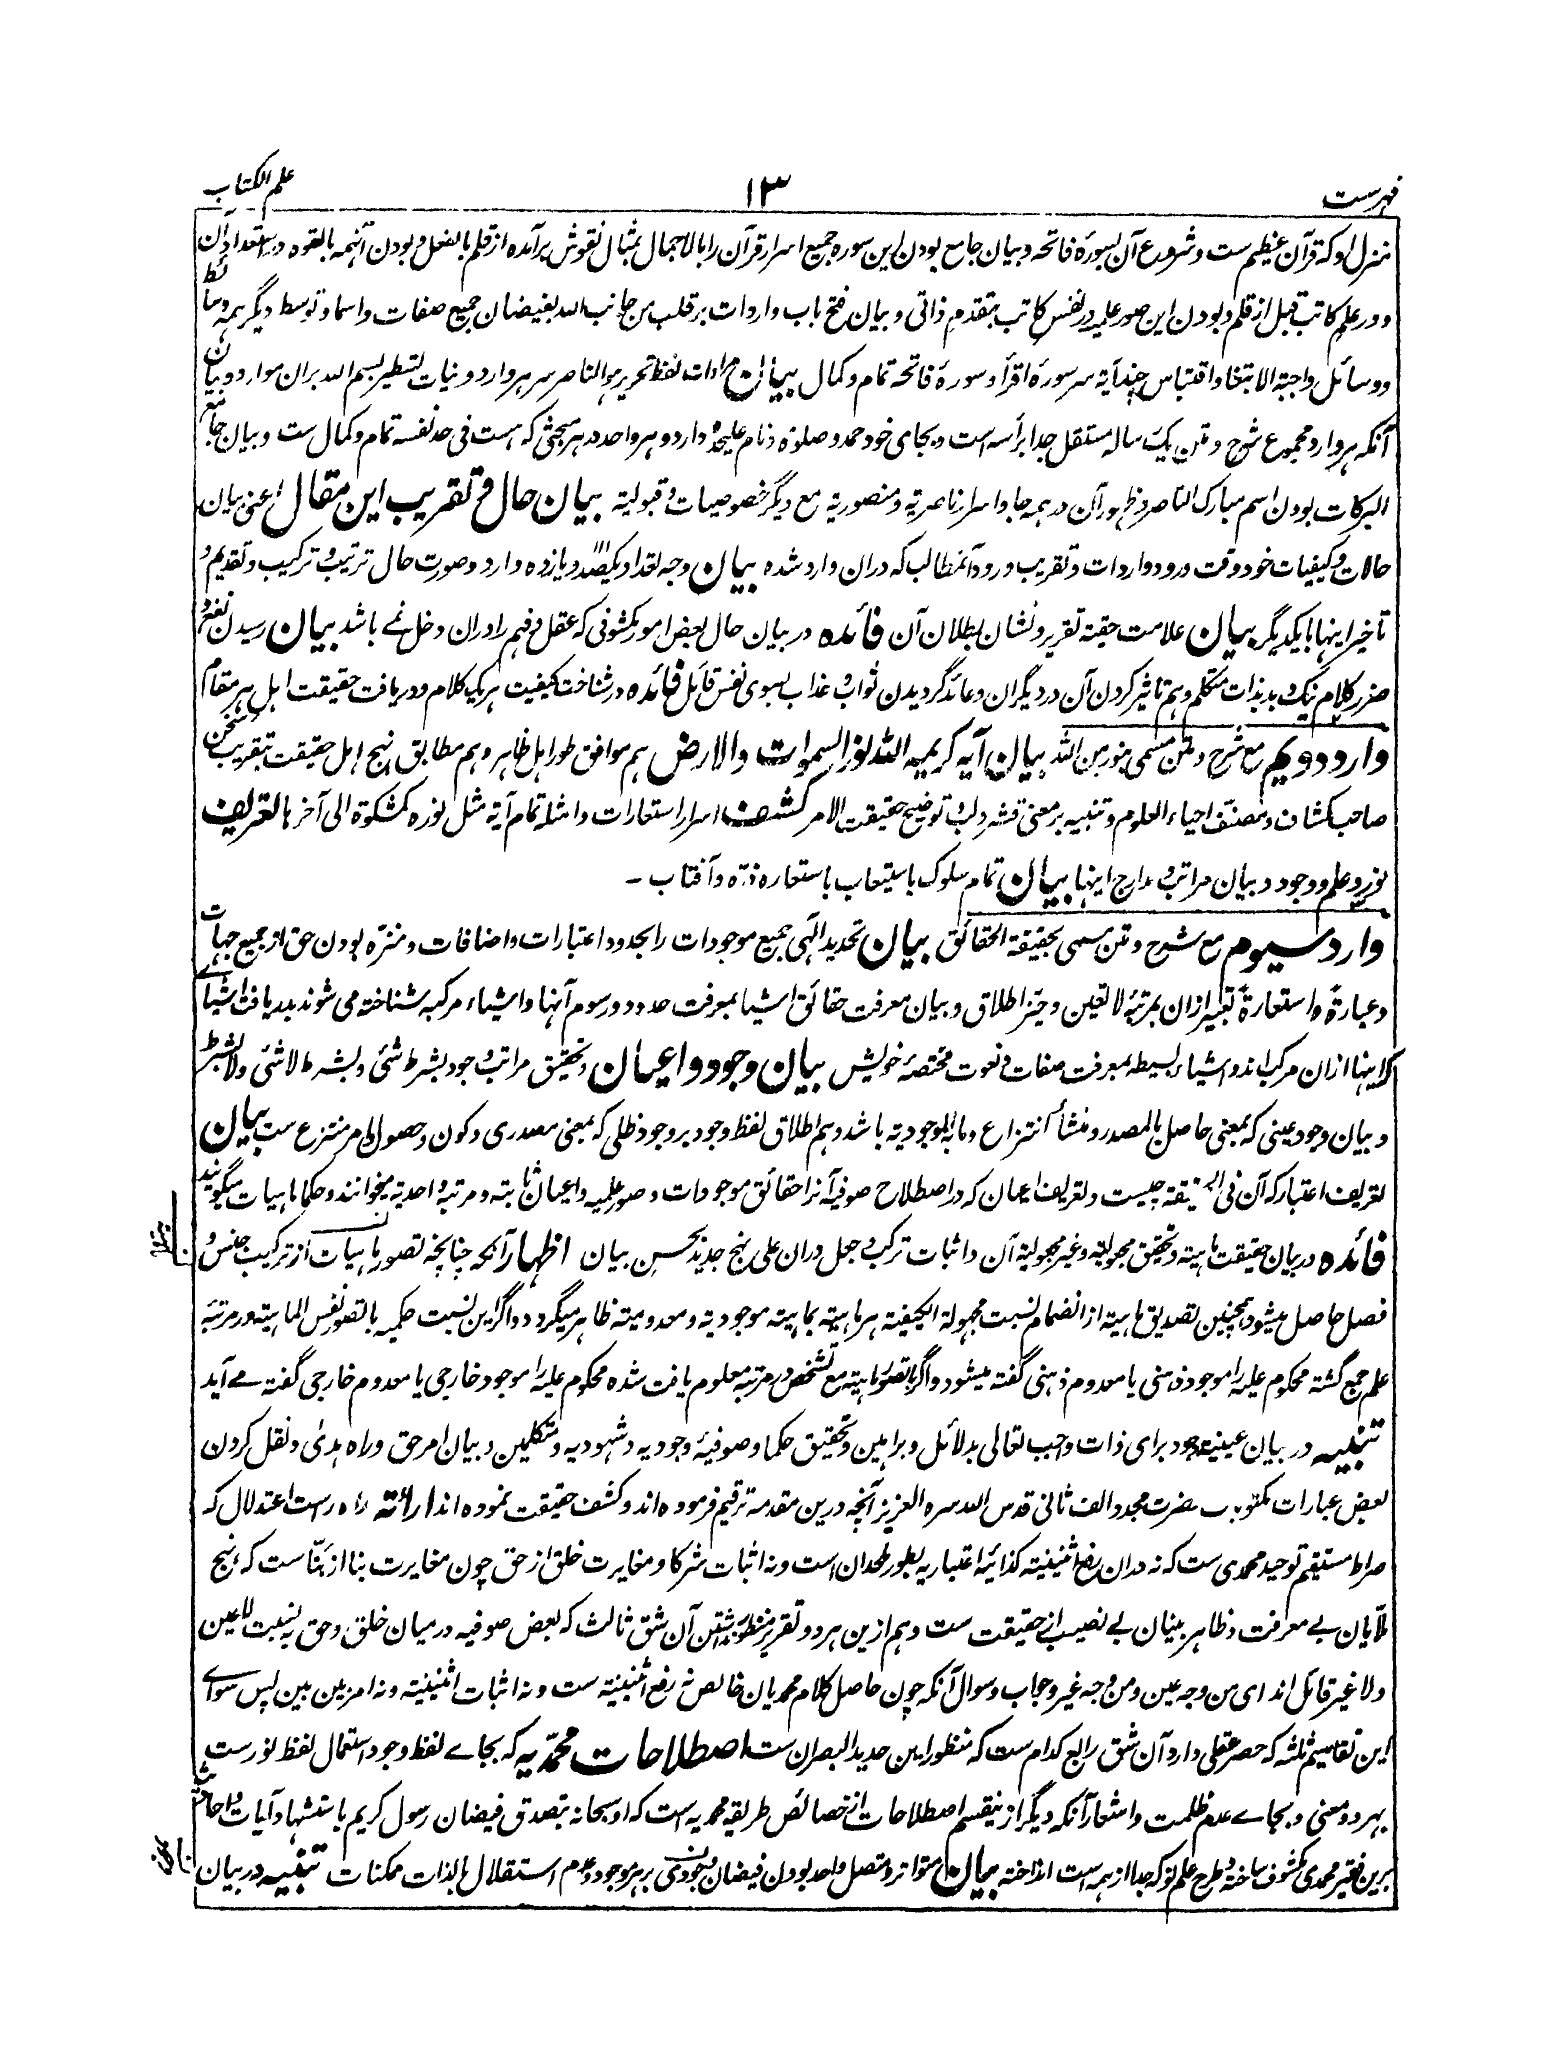 فهرست
۱۳
علم الکتاب
منزل او که قرآن عظیم ست و شروع آن بسورهٔ فاتحه و بیان جامع بودن این سوره جمیع اسرار قرآن را بالاجمال بمثال نقوش برآمده از قلم بالفعل و بودن آنهمه بالقوه در استعداد آن
و در علم کاتب قبل از قلم و بودن این صور علمیه در نفس کاتب بتقدم ذاتی و بیان فتح باب واردات بر قلب من جانب الله بفیضان جمیع صفات و اسما و توسط دیگر همه وسائط
و وسائل واجبة الابتغا و اقتباس چند آیة سر سورهٔ اقرأ و سورهٔ فاتحه تمام و کمال بیان مرادات لفظ تحریر هو الناصر سر هر وارد و نیات تسطیر بسم الله بران موارد و بیان
آنکه هر وارد مجموع شرح و متن یک رساله مستقل جدا برأسه است و بجای خود حمد و صلوة و نام علیحده دارد و هر واحد در هر مبحثی که هست فی حد نفسه تمام و کمال ست و بیان جامع
البرکات بودن اسم مبارک الناصر و ظهور آن در همه جا و اسرار ناصریة و منصوریة مع دیگر خصوصیات و قبولیة بیان حال و تقریب این مقال اعنی بیان
حالات و کیفیات خود وقت ورود واردات و تقریب ورود آنمطالب که دران وارد شده بیان وجه تعداد یکصد و یازده وارد و صورت حال ترتیب و ترکیب و تقدیم و
تاخیر اینها با یکدیگر بیان علامت حقیة تقریر و نشان بطلان آن فائده در بیان حال بعض امور کشوفی که عقل و فهم را دران دخل نمے باشد بیان رسیدن نفع و
ضرر کلام نیک و بد بذات متکلم و هم تاثیر کردن آن در دیگران و عائد گردیدن ثواب و عذاب بسوی نفس قائل فائده در شناخت کیفیت هر یک کلام و دریافت حقیقت اهل هر مقام
وارد دویم مع شرح و متن مسمی بنور من الله بیان آیه کریمه الله نور السموات والارض هم موافق طور اهل ظاهر و هم مطابق نهج اهل حقیقت بتقریب سخن
صاحب کشاف و مصنف احیاء العلوم و تنبیه بر معنی قشر و لب و توضیح حقیقت الامر کشف اسرار استعارات و امثله تمام آیة مثل نوره کمشکوة الی آخرها تعریف
نور و علم و وجود و بیان مراتب و مدارج اینها بیان تمام سلوک باستیعاب باستعاره ذره و آفتاب ـ
وارد سیوم مع شرح و متن مسمی بحقیقة الحقائق بیان تحدید الٰهی جمیع موجودات را بحدود اعتبارات و اضافات و منزه بودن حق از جمیع جهات
و عبارةً و استعارةً تعبیر ازان بمرتبهٔ لا تعین و حیّز اطلاق و بیان معرفت حقائق اشیا بمعرفت حدود و رسوم آنها و اشیاء مرکبه شناخته می شوند بدریافت اشیائے
که اینها ازان مرکب اند و اشیاء بسیطه بمعرفت صفات و نعوت مختصهٔ خویش بیان وجود و اعیان و تحقیق مراتب وجود بشرط شئی و بشرط لا شئی و لا بشرط
و بیان وجود عینی که بمعنی حاصل بالمصدر و منشأ انتزاع و ما به الموجودیة باشد و هم اطلاق لفظ وجود بر وجود ظلی که بمعنی مصدری و کون و حصول و امر منتزع ست بیان
تعریف اعتبار که آن فی الحقیقة چیست و تعریف اعیان که در اصطلاح صوفیه آنرا حقائق موجودات و صور علمیه و اعیان ثابته و مرتبهٔ واحدیة میخوانند و حکما ماهیات میگویند
فائده در بیان حقیقت ماهیة و تحقیق مجعولیة و غیر مجعولیة آن و اثبات ترکب و جعل دران علی نهج جدید بحسن بیان اظهار آنکه چنانچه تصور ماهیات از ترکیب جنس و
فصل حاصل میشود همچنین تصدیق ماهیة از انضمام نسبت مجهولة الکیفیة هر ماهیة بماهیة موجودیة و معدومیة ظاهر میگردد و اگر این نسبت حکمیه با تصور نفس الماهیة در مرتبهٔ
علم جمع گشته محکوم علیه را موجود ذهنی یا معدوم ذهنی گفته میشود و اگر با تصور ماهیة مع تشخص در مرتبهٔ معلوم یافت شده محکوم علیه را موجود خارجی یا معدوم خارجی گفته مے آید
تنبیه در بیان عینیت وجود برای ذات واجب تعالی بدلائل و براهین و تحقیق حکما و صوفیهٔ وجودیه و شهودیه و متکلمین و بیان امر حق و راه هدیٰ و نقل کردن
بعض عبارات مکتوب حضرت مجدد الف ثانی قدس الله سره العزیز آنچه درین مقدمة ترقیم فرموده اند و کشف حقیقت نموده اند ارائة راه راست اعتدال که
صراط مستقیم توحید محمدی ست که نه دران رفع اثنینیة کذائیه اعتباریه بطور ملحدان است و نه اثبات شرکا و مغایرت خلق از حق چون مغایرت بنا از بنّاست که نهج
ملّایان بے معرفت و ظاهر بینان بے نصیب از حقیقت ست و هم ازین هر دو تقریر منظور داشتن آن شق ثالث که بعض صوفیه درمیان خلق و حق به نسبت لا عین
و لا غیر قائل اند ای من وجه عین و من وجه غیر و جواب و سوال آنکه چون حاصل کلام محمدیان خالص نه رفع اثنینیة ست و نه اثبات اثنینیة و نه امر بین بین پس سواے
این تقاسیم ثلثه که حصر عقلی دارد آن شق رابع کدام ست که منظور این حدید البصران ست اصطلاحات محمدیه که بجاے لفظ وجود استعمال لفظ نور ست
بهر دو معنی و بجاے عدم ظلمت و اشعار آنکه دیگر ازینقسم اصطلاحات از خصائص طریقه محمدیه است که او سبحانه بتصدق فیضان رسول کریم باستشهاد آیات و احادیث
برین فقیر محمدی مکشوف ساخته و طرح علم نو که جدا از همه است انداخته بیان متواتر و متصل واحد بودن فیضان وجودی بر هر موجود و عدم استقلال بالذات ممکنات تنبیه در بیان